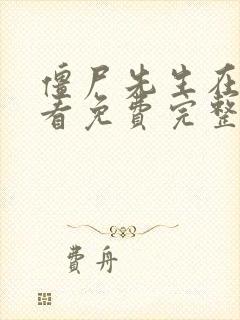 僵尸先生在
看免费完整
费舟